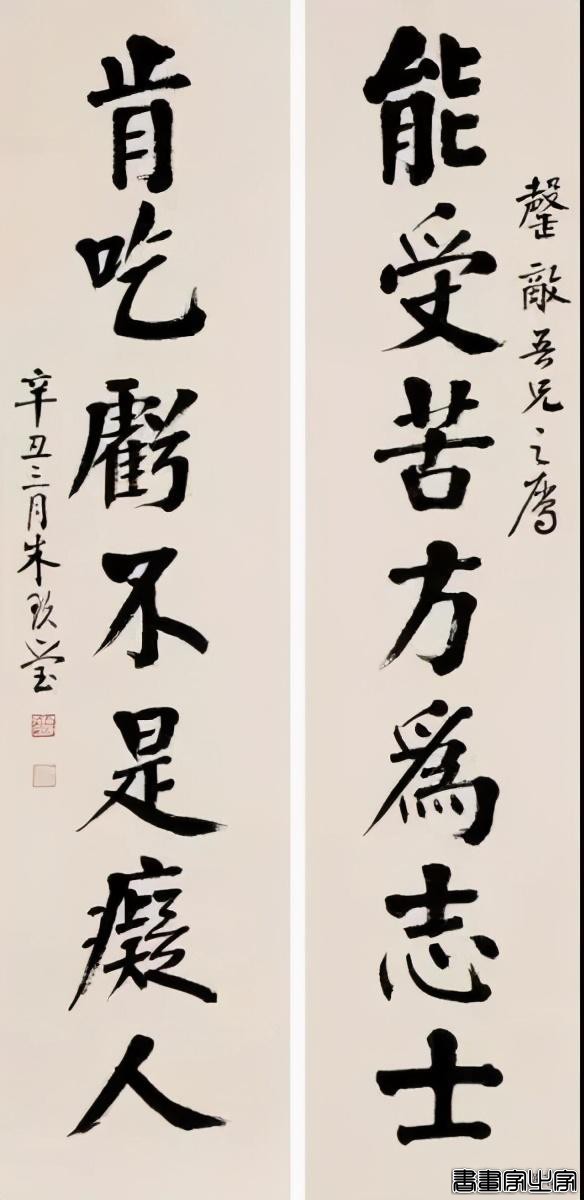 敵吾兄之属
能受苦方為志士
肯吃虧不是癡人
辛丑三月朱玖瑩
書畫家之家